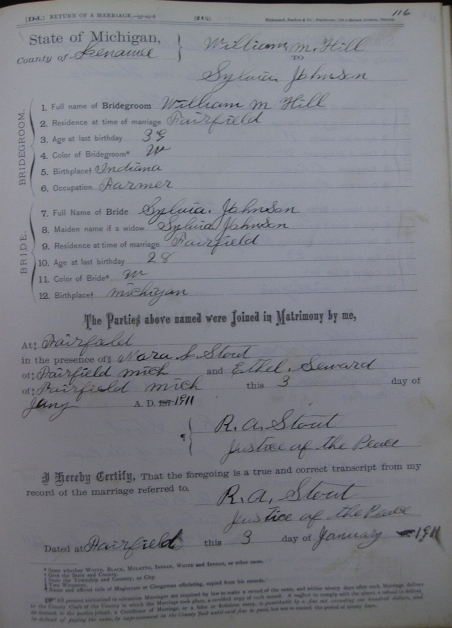 116
RETURN OF A MARRIAGE
State of Michigan,
County of Lenawee
William M. Hill
TO
Sylvia Johnson
BRIDEGROOM.
1. Full name of Bridegroom William M Hill
2. Residence at time of marriage Fairfield
3. Age at last birthday 39
4. Color of Bridegroom* W
5. Birthplace† Indiana
6. Occupation. Farmer
BRIDE.
7. Full Name of Bride Sylvia Johnson
8. Maiden name if a widow Sylvia Johnson
9. Residence at time of marriage Fairfield
10. Age at last birthday 28
11. Color of Bride* W
12. Birthplace† Michigan
The Parties above named were Joined in Matrimony by me,
At‡ Fairfield
in the presence of§ Stout
of‡ Fairfield Mich and Ethel Seward
of‡ Fairfield Mich this 3 day of
Jany A. D. 1911
R. A. Stout
Justice of the Peace
I Hereby Certify, That the foregoing is a true and correct transcript from my
record of the marriage referred to.
R. A. Stout
Justice of the Peace
Dated at Fairfield this 3 day of January 1911
* State whether White, Black, Mulatto, Indian, White and Indian, or other race.
† Give the State and County.